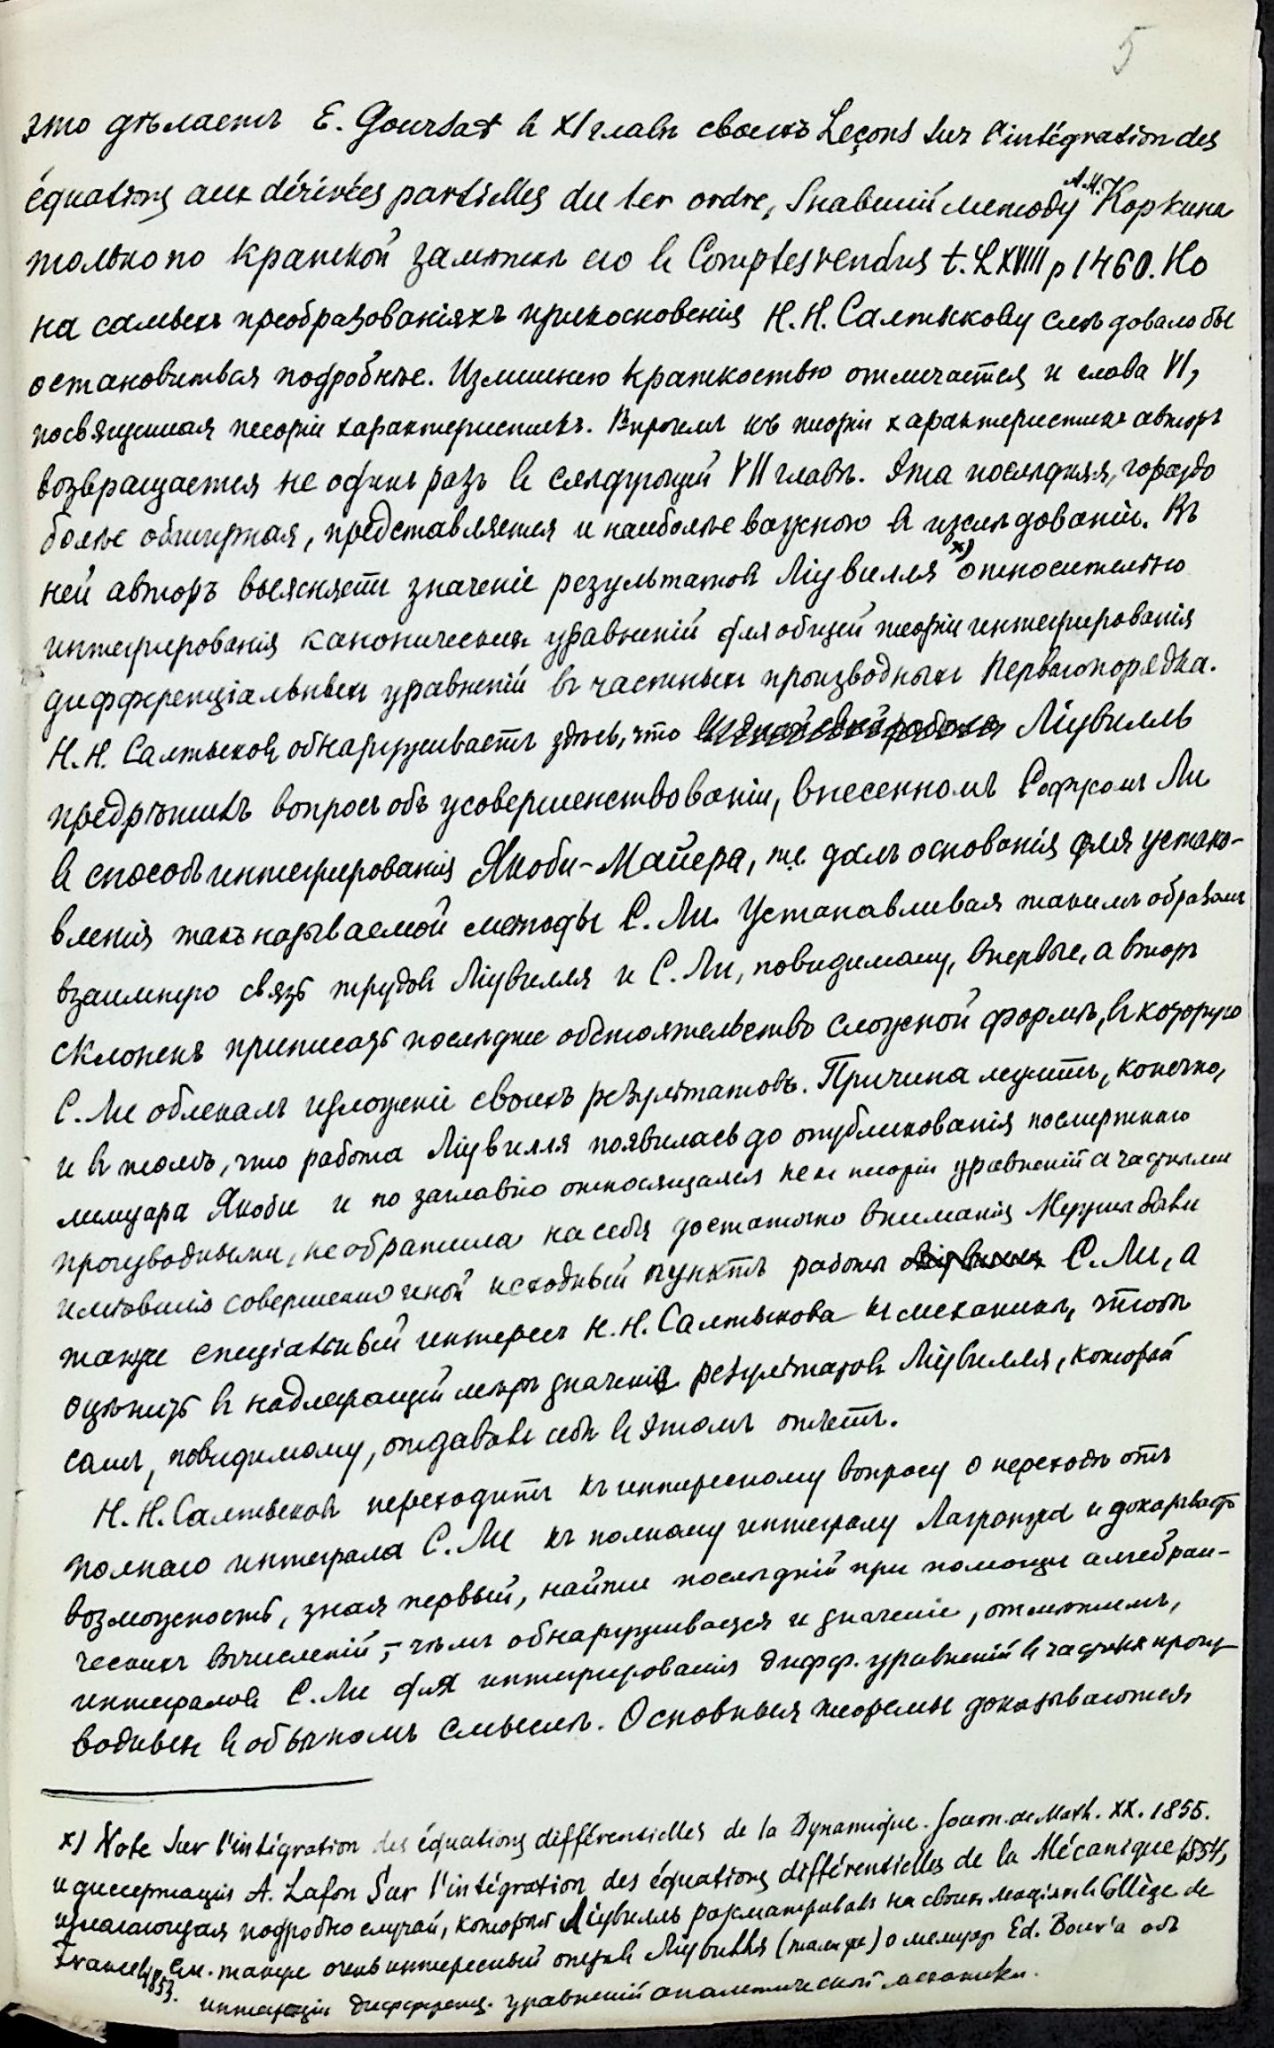 5
это дѣлаетъ E. Goursat въ XI главѣ своихъ Leçons sur l'intégration des
équations aux dérivées partielles du 1er ordre, знавшій методу А.М. Коркина
только по краткой замѣткѣ его въ Comptes rendus t. LXVIII p 1460. Но
на самыхъ преобразованіяхъ прикосновенія Н.Н. Салтыкову слѣдовало бы
остановиться подробнѣе. Излишнею краткостью отличается и глава VI,
посвященная теоріи характеристикъ. Впрочемъ къ теоріи характеристикъ авторъ
возвращается не одинъ разъ въ слѣдующей VII главѣ. Эта послѣдняя, гораздо
болѣе обширная, представляется и наиболѣе важною въ изслѣдованіи. Въ
ней авторъ выясняетъ значеніе результатовъ Ліувилля х) относительно
интегрированія каноническихъ уравненій для общей теоріи интегрированія
дифференціальныхъ уравненій въ частныхъ производныхъ перваго порядка.
Н.Н. Салтыковъ обнаруживаетъ здѣсь, что Ліувилль
предрѣшилъ вопросъ объ усовершенствованіи, внесенномъ Софусомъ Ли
въ способъ интегрированія Якоби-Майера, т.е. далъ основанія для устано-
вленія такъ называемой методы С. Ли. Устанавливая такимъ образомъ
взаимную связь трудовъ Ліувилля и С. Ли, повидимому, впервые, авторъ
склоненъ приписать послѣднее обстоятельство сложной формѣ, въ которую
С. Ли облекалъ изложеніе своихъ результатовъ. Причина лежитъ, конечно,
и въ томъ, что работа Ліувилля появилась до опубликованія посмертнаго
мемуара Якоби и по заглавію относящаяся не къ теоріи уравненій съ частными
производными, не обратила на себя достаточно вниманія. Нуженъ былъ
совершенно иной исходный пунктъ работы С. Ли, а
также спеціальный интересъ Н.Н. Салтыкова къ механикѣ, чтобы
оцѣнить въ надлежащей мѣрѣ значеніе результатовъ Ліувилля, который
самъ, повидимому, отдавалъ себѣ въ этомъ отчетъ.
Н.Н. Салтыковъ переходитъ къ интересному вопросу о переходѣ отъ
полнаго интеграла С. Ли къ полному интегралу Лагранжа и доказываетъ
возможность, зная первый, найти послѣдній при помощи алгебраи-
ческихъ вычисленій, – чѣмъ обнаруживается и значеніе, отмѣтимъ,
интеграловъ С. Ли для интегрированія дифф. уравненій въ частныхъ произ-
водныхъ въ обычномъ смыслѣ. Основныя теоремы доказываются
х) Note sur l'intégration des équations différentielles de la Dynamique. Journ. de Math. XX. 1855.
и диссертація A. Lafon Sur l'intégration des équations différentielles de la Mécanique 1854,
излагающая подробно случай, который Ліувилль разсматривалъ на своихъ лекціяхъ въ Collège de
France въ 1853. См. также очень интересный отзывъ Ліувилля (тамъ же) о мемуарѣ Ed. Bour'a объ
интеграціи дифференц. уравненій аналитической механики.